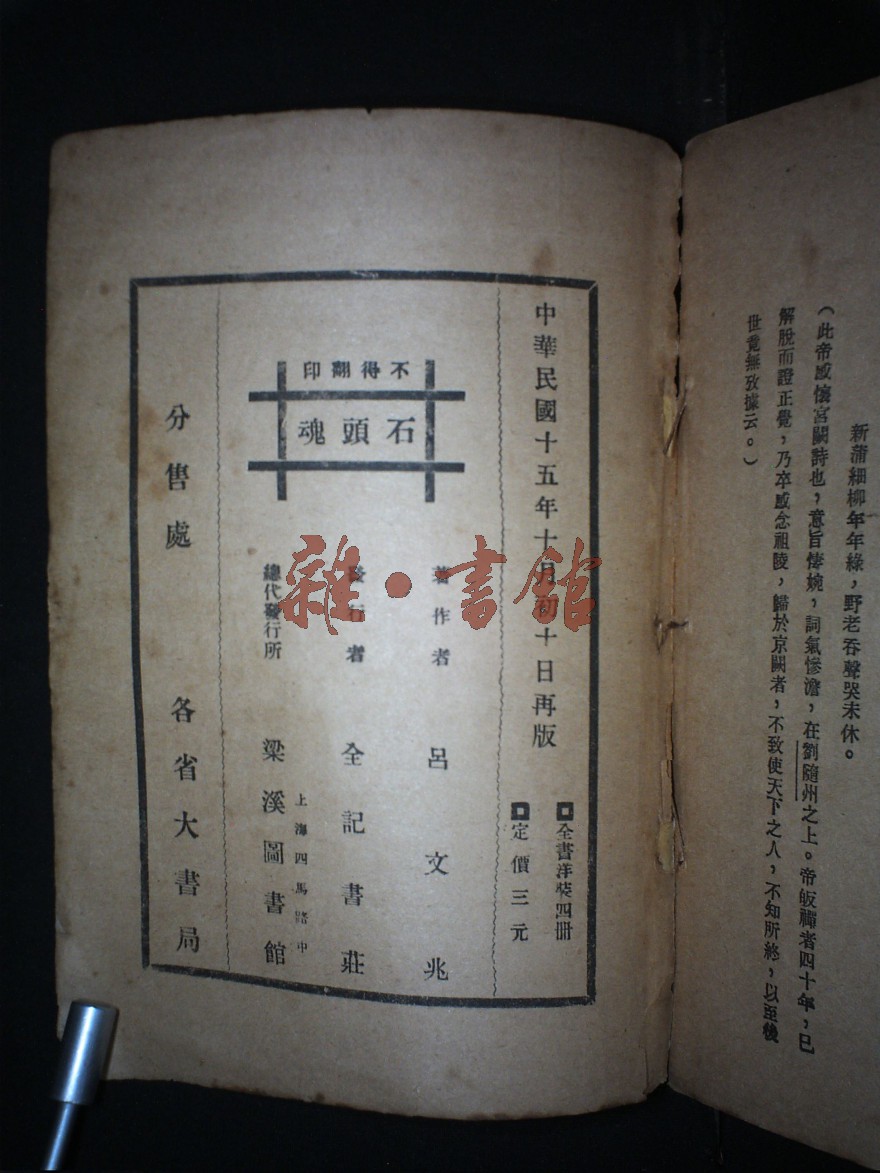 新蒲細柳年年綠，野老吞聲哭未休。
（此帝感懷宮闕詩也，意旨悽婉，詞氣慘澹，在劉隨州之上。帝皈禪者四十年，已
解脫而證正覺，乃卒感念祖陵，歸於京闕者，不致使天下之人，不知所終，以至後
世竟無攷據云。）
中華民國十五年十月初十日再版
全書洋裝四冊
定價三元
不得翻印
石頭魂
著作者 呂文兆
發行者 全記書莊
總代發行所 上海四馬路中 梁溪圖書館
分售處 各省大書局
雜·書館